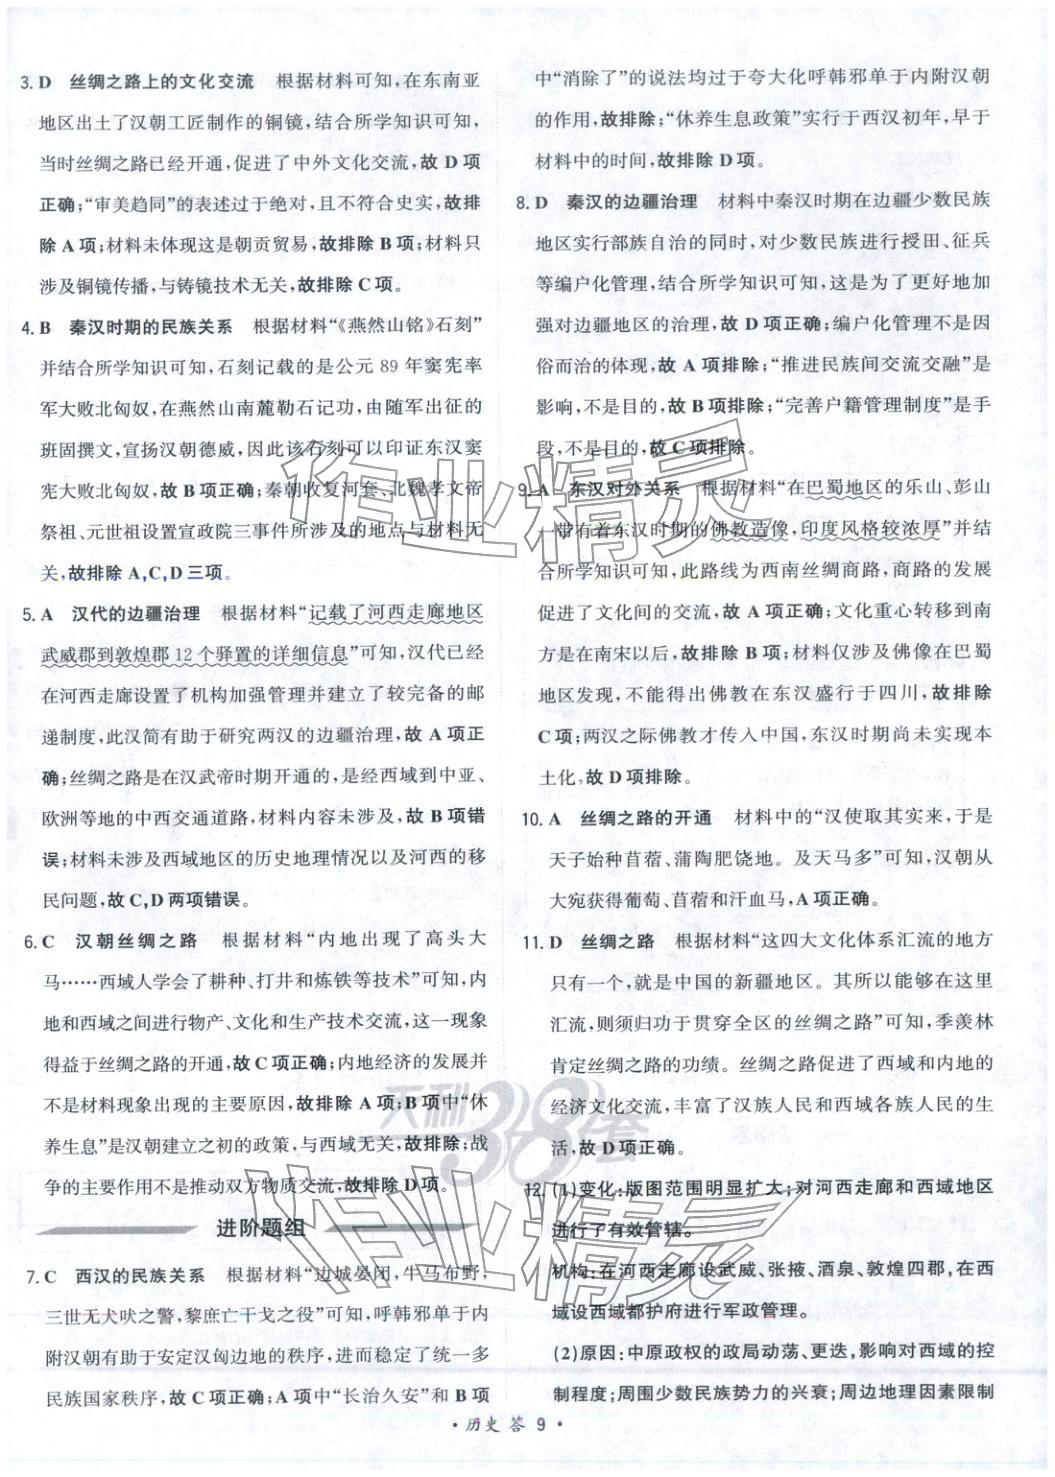 3. D 丝绸之路上的文化交流 根据材料可知,在东南亚
地区出土了汉朝工匠制作的铜镜,结合所学知识可知,
当时丝绸之路已经开通,促进了中外文化交流,故 D 项
正确;“审美趋同”的表述过于绝对,且不符合史实,故排
除 A 项;材料未体现这是朝贡贸易,故排除 B 项;材料只
涉及铜镜传播,与铸镜技术无关,故排除 C 项。
4. B 秦汉时期的民族关系 根据材料“《燕然山铭》石刻”
并结合所学知识可知,石刻记载的是公元 89 年窦宪率
军大败北匈奴,在燕然山南麓勒石记功,由随军出征的
班固撰文,宣扬汉朝德威,因此该石刻可以印证东汉窦
宪大败北匈奴,故 B 项正确;秦朝收复河套、北魏孝文帝
祭祖、元世祖设置宣政院三事件所涉及的地点与材料无
关,故排除 A,C,D 三项。
5. A 汉代的边疆治理 根据材料“记载了河西走廊地区
武威郡到敦煌郡 12 个驿置的详细信息”可知,汉代已经
在河西走廊设置了机构加强管理并建立了较完备的邮
递制度,此汉简有助于研究两汉的边疆治理,故 A 项正
确;丝绸之路是在汉武帝时期开通的,是经西域到中亚、
欧洲等地的中西交通道路,材料内容未涉及,故 B 项错
误;材料未涉及西域地区的历史地理情况以及河西的移
民问题,故 C,D 两项错误。
6. C 汉朝丝绸之路 根据材料“内地出现了高头大
马……西域人学会了耕种、打井和炼铁等技术”可知,内
地和西域之间进行物产、文化和生产技术交流,这一现象
得益于丝绸之路的开通,故 C 项正确;内地经济的发展并
不是材料现象出现的主要原因,故排除 A 项;B 项中“休
养生息”是汉朝建立之初的政策,与西域无关,故排除;战
争的主要作用不是推动双方物质交流,故排除 D 项。
进阶题组
7. C 西汉的民族关系 根据材料“边城晏闭,牛马布野,
三世无犬吠之警,黎庶亡干戈之役”可知,呼韩邪单于内
附汉朝有助于安定汉匈边地的秩序,进而稳定了统一多
民族国家秩序,故 C 项正确;A 项中“长治久安”和 B 项
中“消除了”的说法均过于夸大化呼韩邪单于内附汉朝
的作用,故排除;“休养生息政策”实行于西汉初年,早于
材料中的时间,故排除 D 项。
8. D 秦汉的边疆治理 材料中秦汉时期在边疆少数民族
地区实行部族自治的同时,对少数民族进行授田、征兵
等编户化管理,结合所学知识可知,这是为了更好地加
强对边疆地区的治理,故 D 项正确;编户化管理不是因
俗而治的体现,故 A 项排除;“推进民族间交流交融”是
影响,不是目的,故 B 项排除;“完善户籍管理制度”是手
段,不是目的,故 C 项排除。
9. A 东汉对外关系 根据材料“在巴蜀地区的乐山、彭山
一带有着东汉时期的佛教造像,印度风格较浓厚”并结
合所学知识可知,此路线为西南丝绸商路,商路的发展
促进了文化间的交流,故 A 项正确;文化重心转移到南
方是在南宋以后,故排除 B 项;材料仅涉及佛像在巴蜀
地区发现,不能得出佛教在东汉盛行于四川,故排除
C 项;两汉之际佛教才传入中国,东汉时期尚未实现本
土化,故 D 项排除。
10. A 丝绸之路的开通 材料中的“汉使取其实来,于是
天子始种苜蓿、蒲陶肥饶地。及天马多”可知,汉朝从
大宛获得葡萄、苜蓿和汗血马,A 项正确。
11. D 丝绸之路 根据材料“这四大文化体系汇流的地方
只有一个,就是中国的新疆地区。其所以能够在这里
汇流,则须归功于贯穿全区的丝绸之路”可知,季羡林
肯定丝绸之路的功绩。丝绸之路促进了西域和内地的
经济文化交流,丰富了汉族人民和西域各族人民的生
活,故 D 项正确。
12. (1)变化:版图范围明显扩大;对河西走廊和西域地区
进行了有效管辖。
机构:在河西走廊设武威、张掖、酒泉、敦煌四郡,在西
域设西域都护府进行军政管理。
(2)原因:中原政权的政局动荡、更迭,影响对西域的控
制程度;周围少数民族势力的兴衰;周边地理因素限制
·历史 答 9·
作业精灵
作业精灵
天利38套